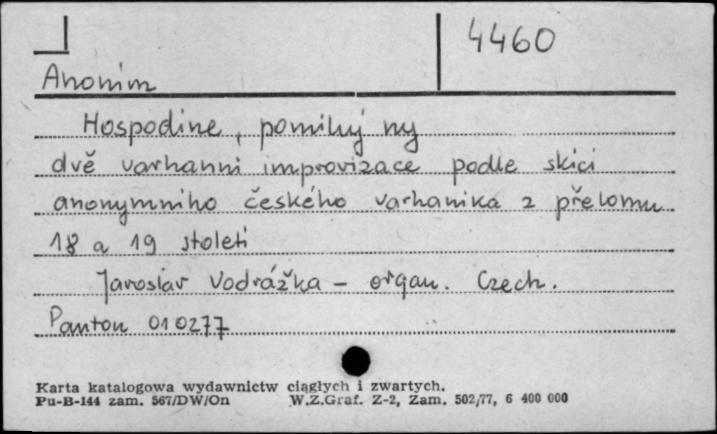 4460
Anonim
Hospodine, pomiluj ny
dvě varhanni improvizace podle skici
anonymniho českého varhanika z přelomu
18 a 19 stoleti
Jaroslav Vodrážka - organ. Czech.
Panton 010277
Karta katalogowa wydawnictw ciągłych i zwartych.
Pu-B-144 zam. 567/DW/On W.Z.Graf. Z-2, Zam. 502/77, 6 400 000